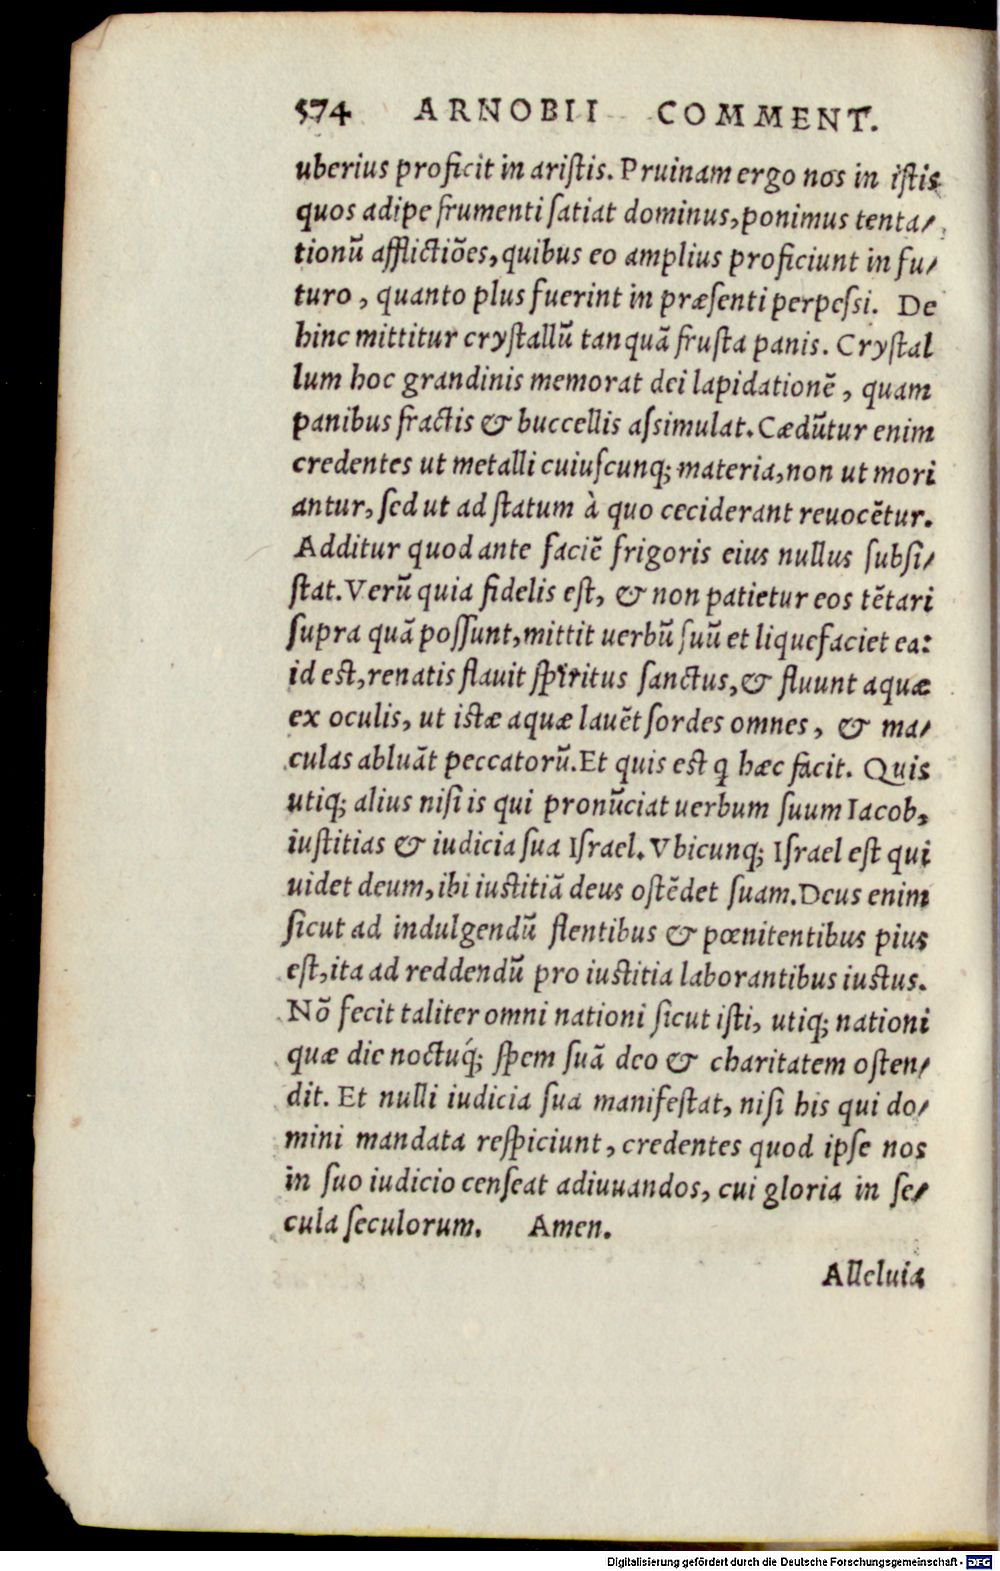 574 ARNOBII COMMENT.
uberius proficit in aristis. Pruinam ergo nos in istis
quos adipe frumenti satiat dominus, ponimus tenta/
tionũ afflictiões, quibus eo amplius proficiunt in fu/
turo, quanto plus fuerint in præsenti perpessi. De
hinc mittitur crystallũ tanquã frusta panis. Crystal
lum hoc grandinis memorat dei lapidationẽ, quam
panibus fractis & buccellis assimulat. Cædũtur enim
credentes ut metalli cuiuscunq; materia, non ut mori
antur, sed ut ad statum à quo ceciderant reuocẽtur.
Additur quod ante faciẽ frigoris eius nullus subsi/
stat. Verũ quia fidelis est, & non patietur eos tẽtari
supra quã possunt, mittit uerbũ suũ et liquefaciet ea:
id est, renatis flauit spiritus sanctus, & fluunt aquæ
ex oculis, ut istæ aquæ lauẽt sordes omnes, & ma/
culas abluãt peccatorũ. Et quis est q hæc facit. Quis
utiq; alius nisi is qui pronũciat uerbum suum Iacob,
iustitias & iudicia sua Israel. Vbicunq; Israel est qui
uidet deum, ibi iustitiã deus ostẽdet suam. Deus enim
sicut ad indulgendũ flentibus & pœnitentibus pius
est, ita ad reddendũ pro iustitia laborantibus iustus.
Nõ fecit taliter omni nationi sicut isti, utiq; nationi
quæ die noctuq́; spem suã deo & charitatem osten/
dit. Et nulli iudicia sua manifestat, nisi his qui do/
mini mandata respiciunt, credentes quod ipse nos
in suo iudicio censeat adiuuandos, cui gloria in se/
cula seculorum. Amen.
Alleluia
Digitalisierung gefördert durch die Deutsche Forschungsgemeinschaft - DFG